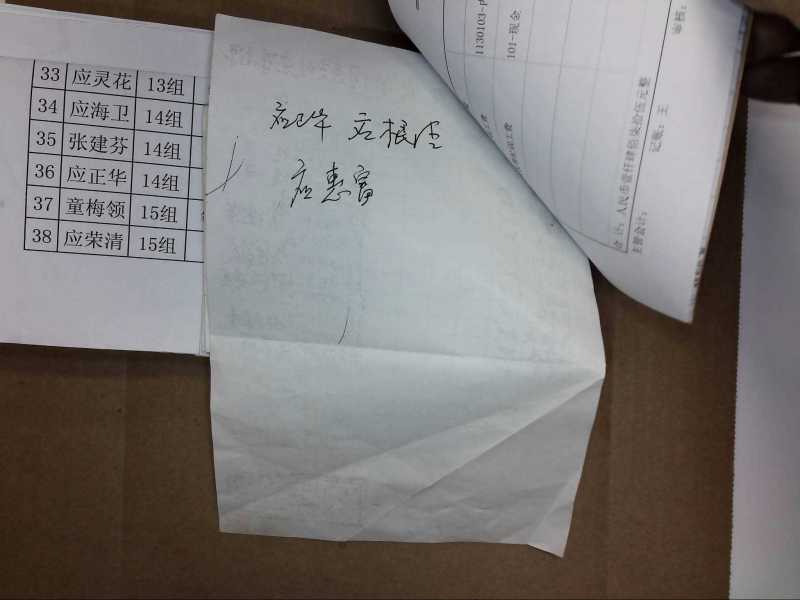 33 应灵花 13组
34 应海卫 14组
35 张建芬 14组
36 应正华 14组
37 童梅领 15组
38 应荣清 15组
应根
应惠富
1130103-
101-现金
工费
合计：人民币壹仟肆佰柒拾伍元整
主管会计：
记账：王
审核：